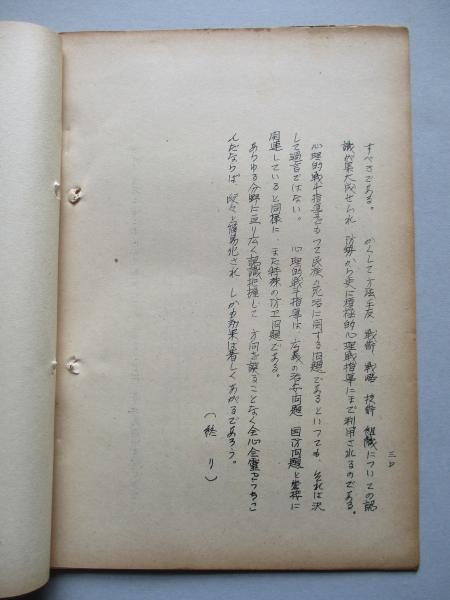 三〇
すべきである。 かくして方法手段 戦術 戦略 技術 組織についての認
識が集大成せられ 防勢から更に積極的心理戦指導にまで利用されるのである。
心理的戦争指導をもって民族の死活に関する問題であるといつても、それは決
して過言ではない。 心理的戦争指導は、広義の治安問題 国防問題と密接に
関連していると同様に、また特殊の防卫問題である。
あらゆる分野に亘り広く認識把握して 方向を誤ることなく全心全霊をうちこ
んだならば 段々と容易化され しかも効果は著しくあがるであろう。
(終り)